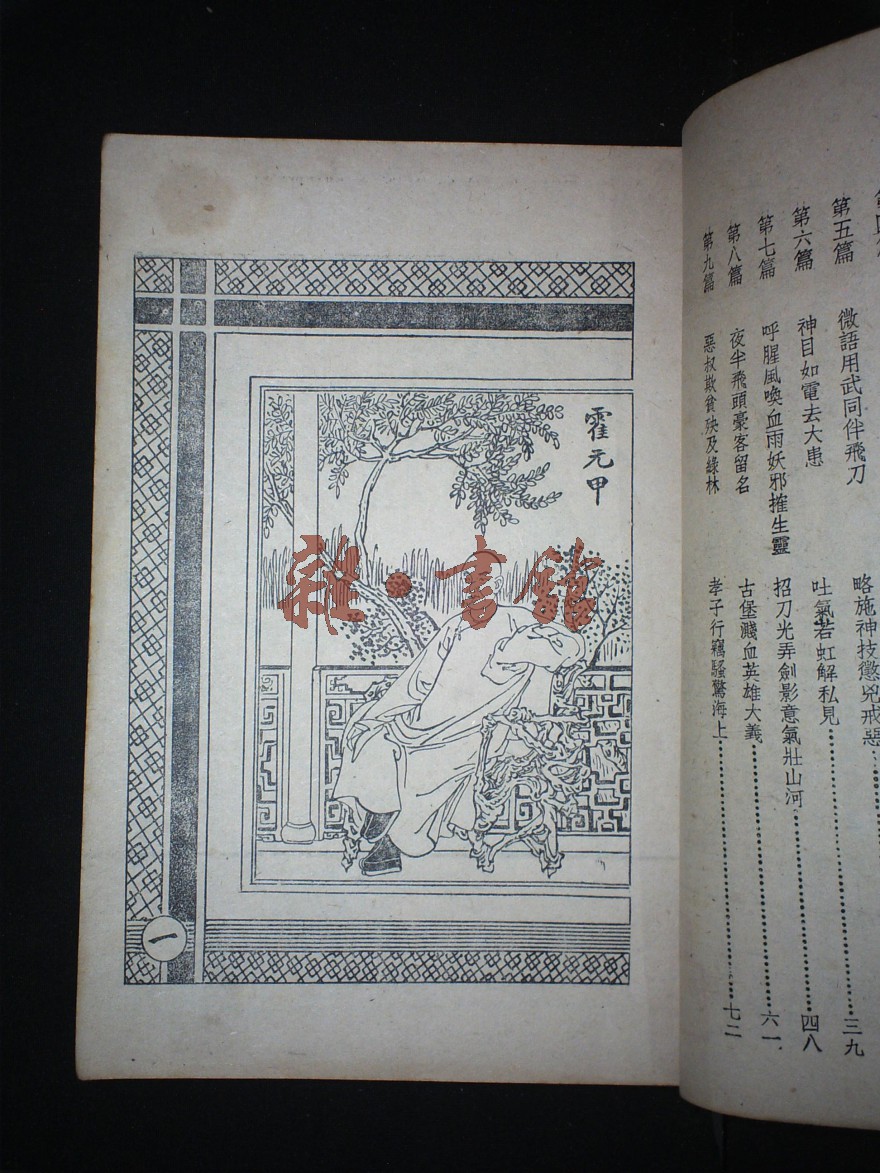 第五篇 微語用武同伴飛刀 略施神技懲兇戒惡
第六篇 神目如電去大患 吐氣若虹解私見……三九
第七篇 呼腥風喚血雨妖邪摧生靈 招刀光弄劍影意氣壯山河……四八
第八篇 夜半飛頭豪客留名 古堡濺血英雄大義……六一
第九篇 惡叔欺貧殃及綠林 孝子行竊騷驚海上……七二
霍元甲
雜·書館
一